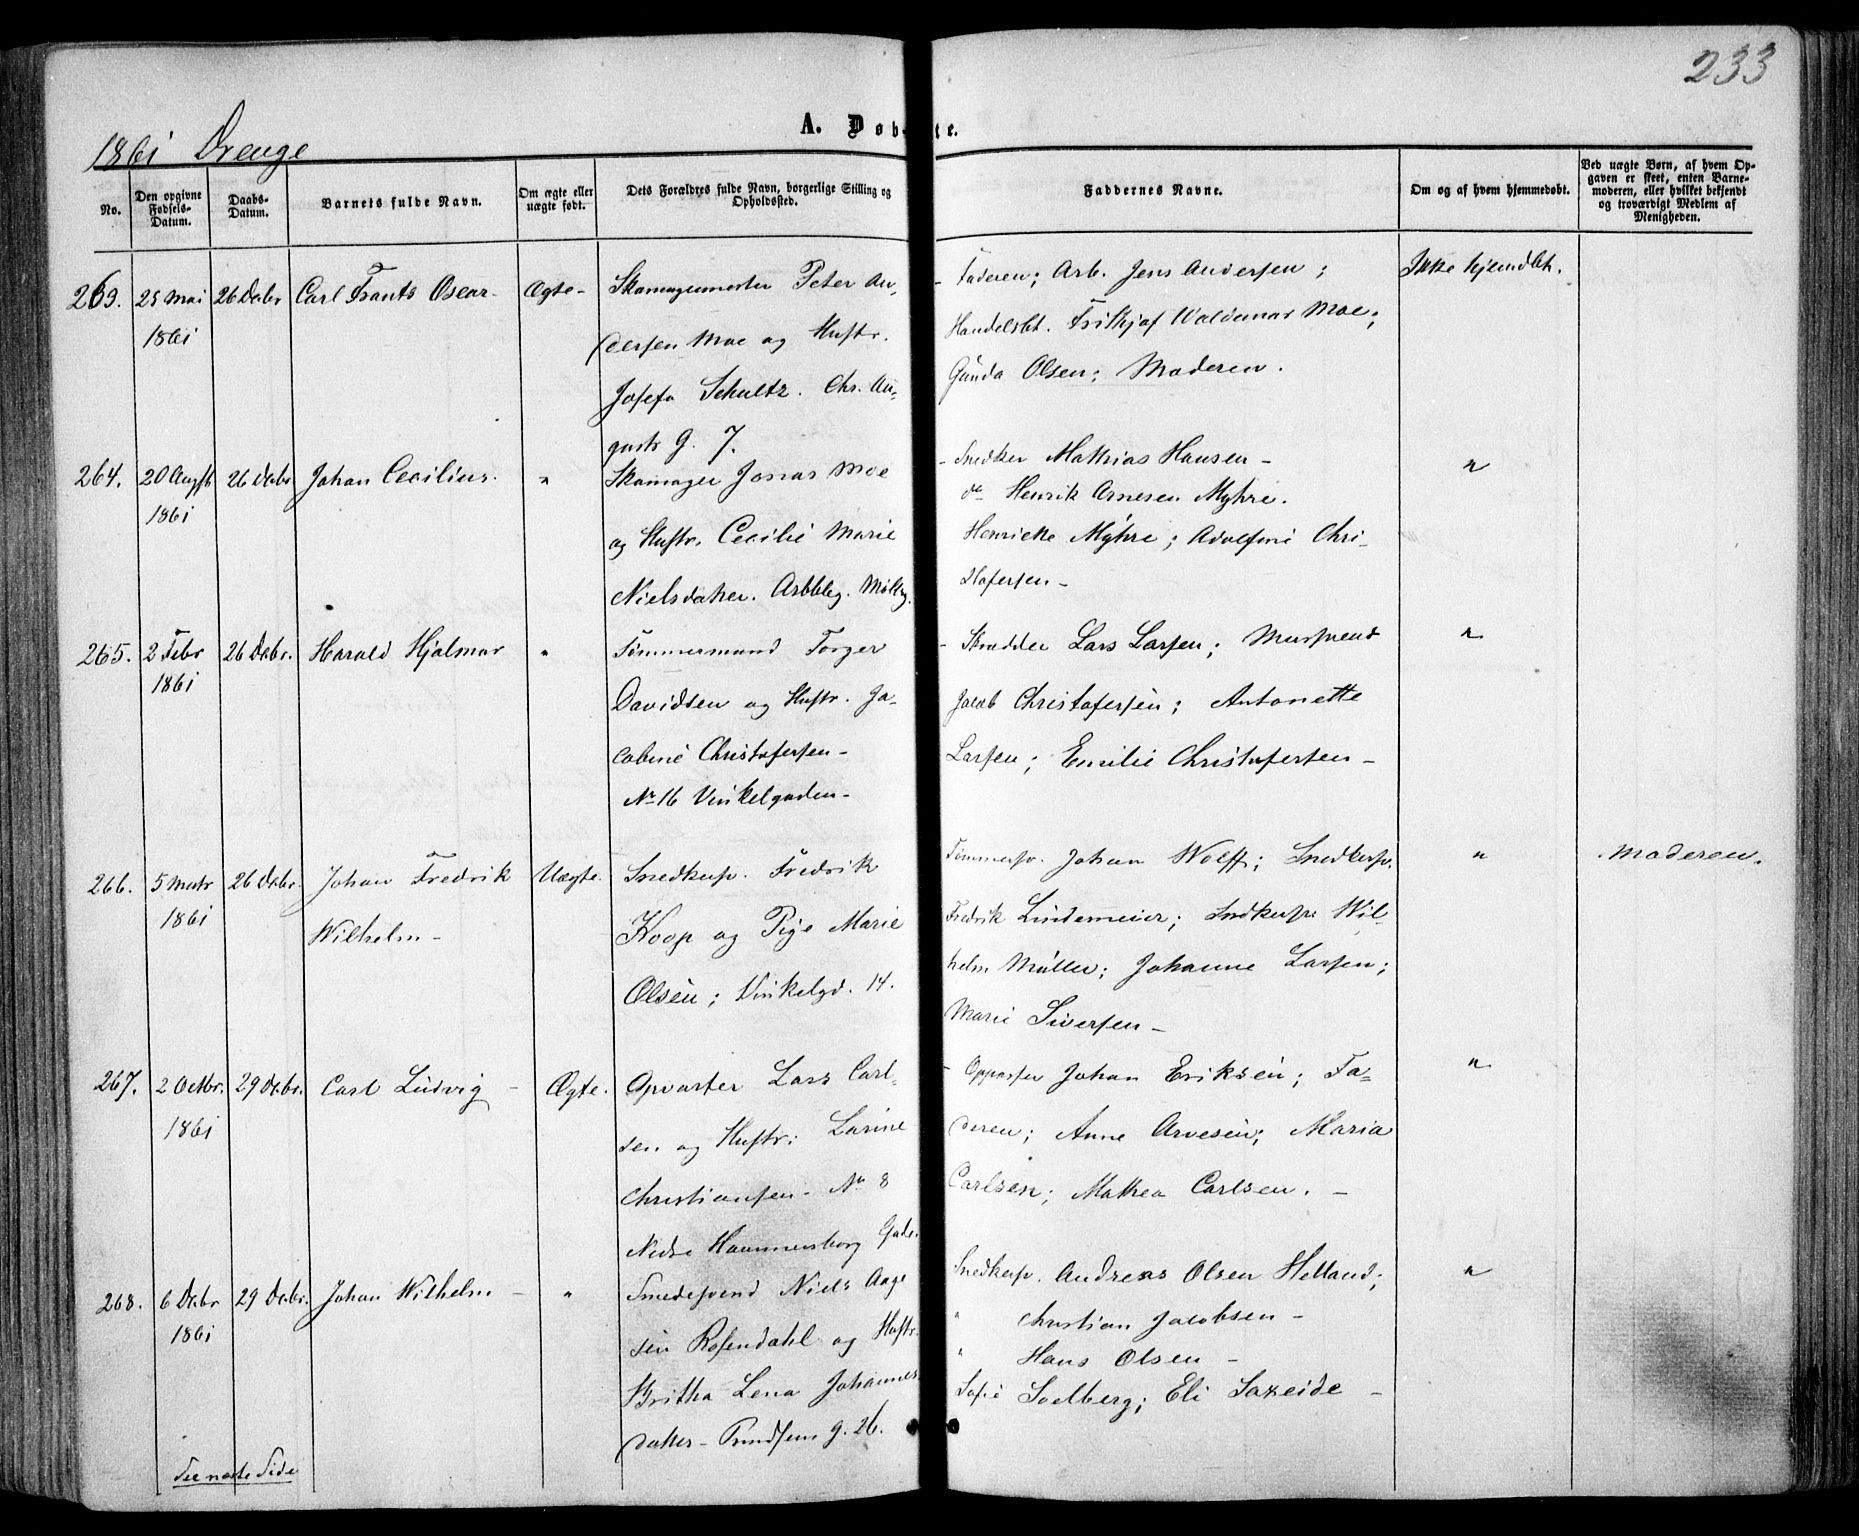 233
A. Døb te.
1861 Drenge
No.
Den opgivne Fødsels-Datum.
Daabs-Datum.
Barnets fulde Navn.
Om ægte eller uægte født.
Dets Forældres fulde Navn, borgerlige Stilling og Opholdssted.
Faddernes Navne.
Om og af hvem hjemmedøbt.
Ved uægte Børn, af hvem Opgaven er skeet, enten Barnemoderen, eller hvilket bekjendt og troværdigt Medlem af Menigheden.
263. 25 Mai 26 Decbr Carl Frants Oscar- Ægte- Skomagermester Peter An-
1861 dersen Moe og Hustr.
Josefa Schultz. Chr. Au-
gusts G. 7.
- Faderen; Arb. Jens Andersen;
Handelsbt. Frithjof Waldemar Moe;
Gunda Olsen; Moderen.
Ikke hjemdbt.
264. 20 August 26 Decbr Johan Cecilius. " Skomager Jonas Moe
1861 og Hustr. Cecilie Marie
Nielsdatter. Arbblig. Møllg.
- Snedker Mathias Hansen-
do Henrik Arnesen Myhre.
Henrikke Myhre; Adolfine Chri-
stofersen-
"
265. 2 Febr 26 Decbr. Harald Hjalmar " Tømmermand Torger
1861 Davidsen og Hustr. Ja-
cobine Christofersen-
No 16 Vinkelgaden-
- Skrædder Lars Larsen; Mursvend
Jacob Christofersen; Antonette
Larsen; Emilie Christofersen-
"
266. 5 Marts 26 Decbr. Johan Fredrik Uægte. Snedkersv. Fredrik
1861 Wilhelm- Koop og Pige Marie
Olsen; Vinkelgd. 14.
Tømmersv. Johan Wolff; Snedkersv.
Fredrik Lindemeier; Snedkersv. Wil-
helm Müller; Johanne Larsen;
Marie Siversen-
"
Moderen.
267. 2 Octbr. 29 Decbr. Carl Ludvig - Ægte. Opvarter Lars Carl-
1861 sen og Hustr: Larine
Christiansen- No 8
Nedre Hammersborg Gade.
- Oppasser Johan Eriksen; Fa-
deren; Anne Arvesen; Maria
Carlsen; Mathea Carlsen. -
"
268. 6 Decbr 29 Decbr. Johan Wilhelm - " Smedesvend Niels Aage
1861 sen Rosendahl og Hustr.
Britha Lena Johannes
datter- Trondsens G. 26.
Snedkersv. Andreas Olsen Helland;
" Christian Jacobsen-
" Hans Olsen-
Sofie Soelberg; Eli Saxeide-
"
See næste Side